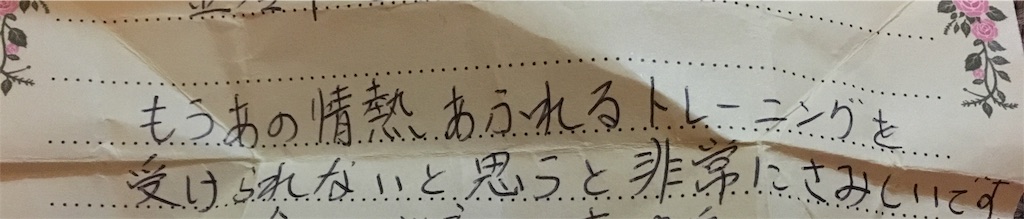 もうあの情熱あふれるトレーニングを
受けられないと思うと非常にさみしいです